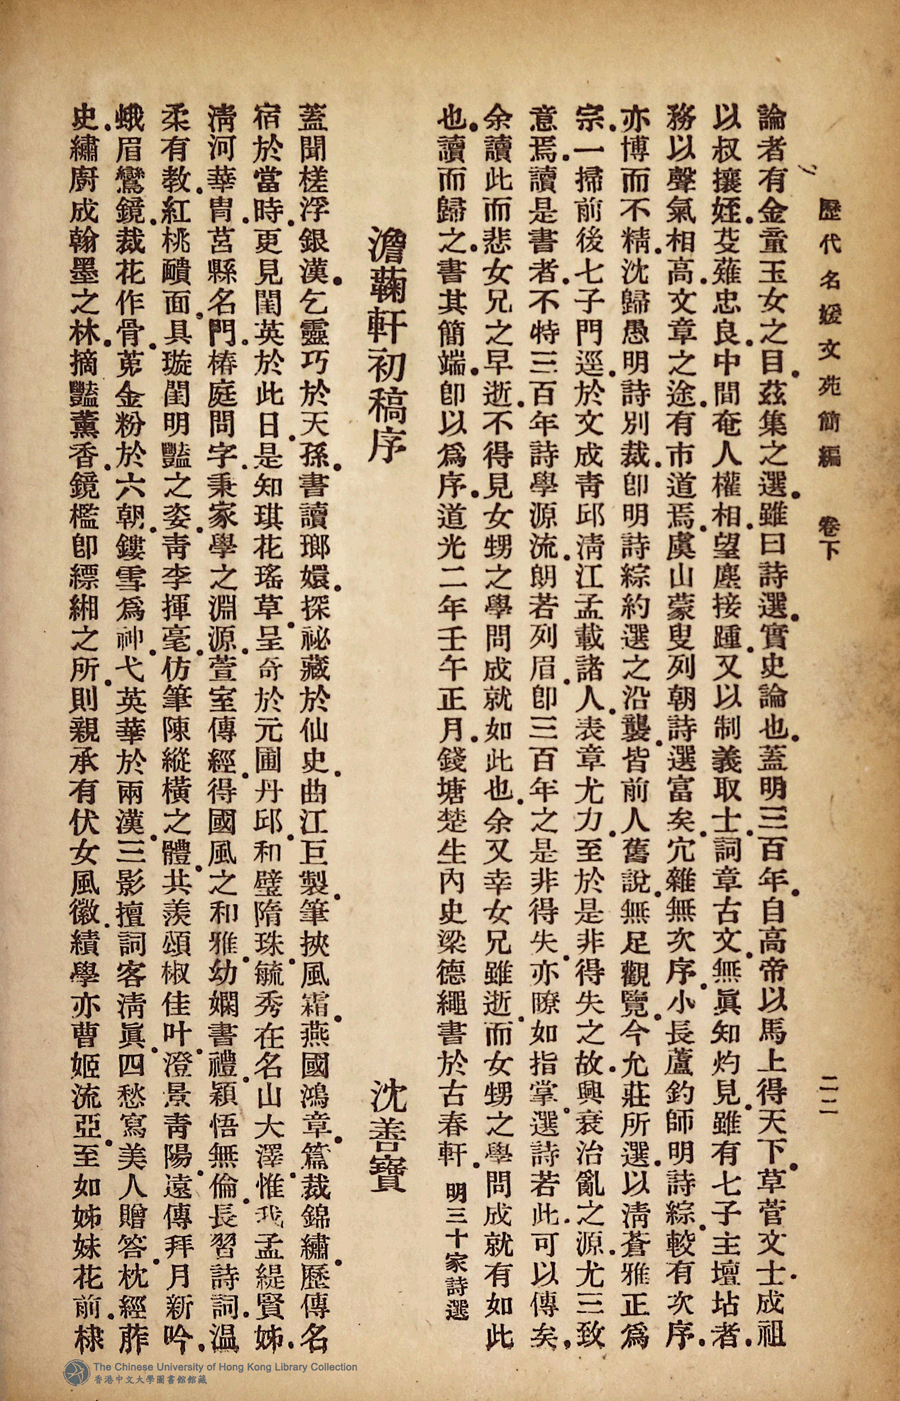 歷代名媛文苑簡編　卷下　二二
論者有金童玉女之目。茲集之選。雖曰詩選。實史論也。蓋明三百年。自高帝以馬上得天下。草菅文士。成祖
以叔攘姪。芟薙忠良。中間奄人權相。望塵接踵。又以制義取士。詞章古文。無眞知灼見。雖有七子主壇坫者。
務以聲氣相高。文章之途。有市道焉。虞山蒙叟列朝詩選富矣。宂雜無次序。小長蘆釣師明詩綜。較有次序。
亦博而不精。沈歸愚明詩別裁。卽明詩綜約選之沿襲。皆前人舊說。無足觀覽。今允莊所選。以淸蒼雅正爲
宗。一掃前後七子門逕。於文成靑邱淸江孟載諸人。表章尤力。至於是非得失之故。興衰治亂之源。尤三致
意焉。讀是書者。不特三百年詩學源流。朗若列眉。卽三百年之是非得失。亦瞭如指掌。選詩若此。可以傳矣。
余讀此而悲女兄之早逝。不得見女甥之學問成就如此也。余又幸女兄雖逝。而女甥之學問成就有如此
也。讀而歸之。書其簡端。卽以爲序。道光二年壬午正月。錢塘楚生內史梁德繩書於古春軒。明三十家詩選
澹蘜軒初稿序　沈善寶
蓋聞槎浮銀漢。乞靈巧於天孫。書讀瑯嬛。探祕藏於仙史。曲江巨製。筆挾風霜。燕國鴻章。篇裁錦繡。歷傳名
宿於當時。更見閨英於此日。是知琪花瑤草。呈奇於元圃丹邱。和璧隋珠。毓秀在名山大澤。惟我孟緹賢姊。
淸河華胄。莒縣名門。椿庭問字。秉家學之淵源。萱室傳經。得國風之和雅。幼嫻書禮。穎悟無倫。長習詩詞。溫
柔有教。紅桃靧面。具璇閨明豔之姿。靑李揮毫。仿筆陳縱橫之體。共羨頌椒佳叶。澄景靑陽。遠傳拜月新吟。
蛾眉鸞鏡。裁花作骨。苐金粉於六朝。鏤雪爲神。弋英華於兩漢。三影擅詞客淸眞。四愁寫美人贈答。枕經葄
史。繡㕑成翰墨之林。摘豔薰香。鏡檻卽縹緗之所。則親承有伏女風徽。績學亦曹姬流亞。至如姊妹花前。棣
The Chinese University of Hong Kong Library Collection
香港中文大學圖書館館藏